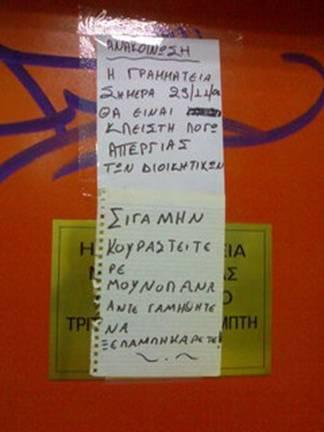 ΑΝΑΚΟΙΝΩΣΗ
Η ΓΡΑΜΜΑΤΕΙΑ
ΣΗΜΕΡΑ 23/11/
ΘΑ ΕΙΝΑΙ
ΚΛΕΙΣΤΗ ΛΟΓΩ
ΑΠΕΡΓΙΑΣ
ΤΩΝ ΔΙΟΙΚΗΤΙΚΩΝ
ΣΙΓΑ ΜΗΝ
ΚΟΥΡΑΣΤΕΙΤΕ
ΡΕ
ΜΟΥΝΟΠΑΝΑ
ΑΝΤΕ ΓΑΜΗΘΗΤΕ
ΝΑ
ΞΕΛΑΜΠΗΚΑΡΕΤΕ!
Η ΕΙΑ
Μ ΑΣ
Ο
ΤΡΙΤ ΜΠΤΗ